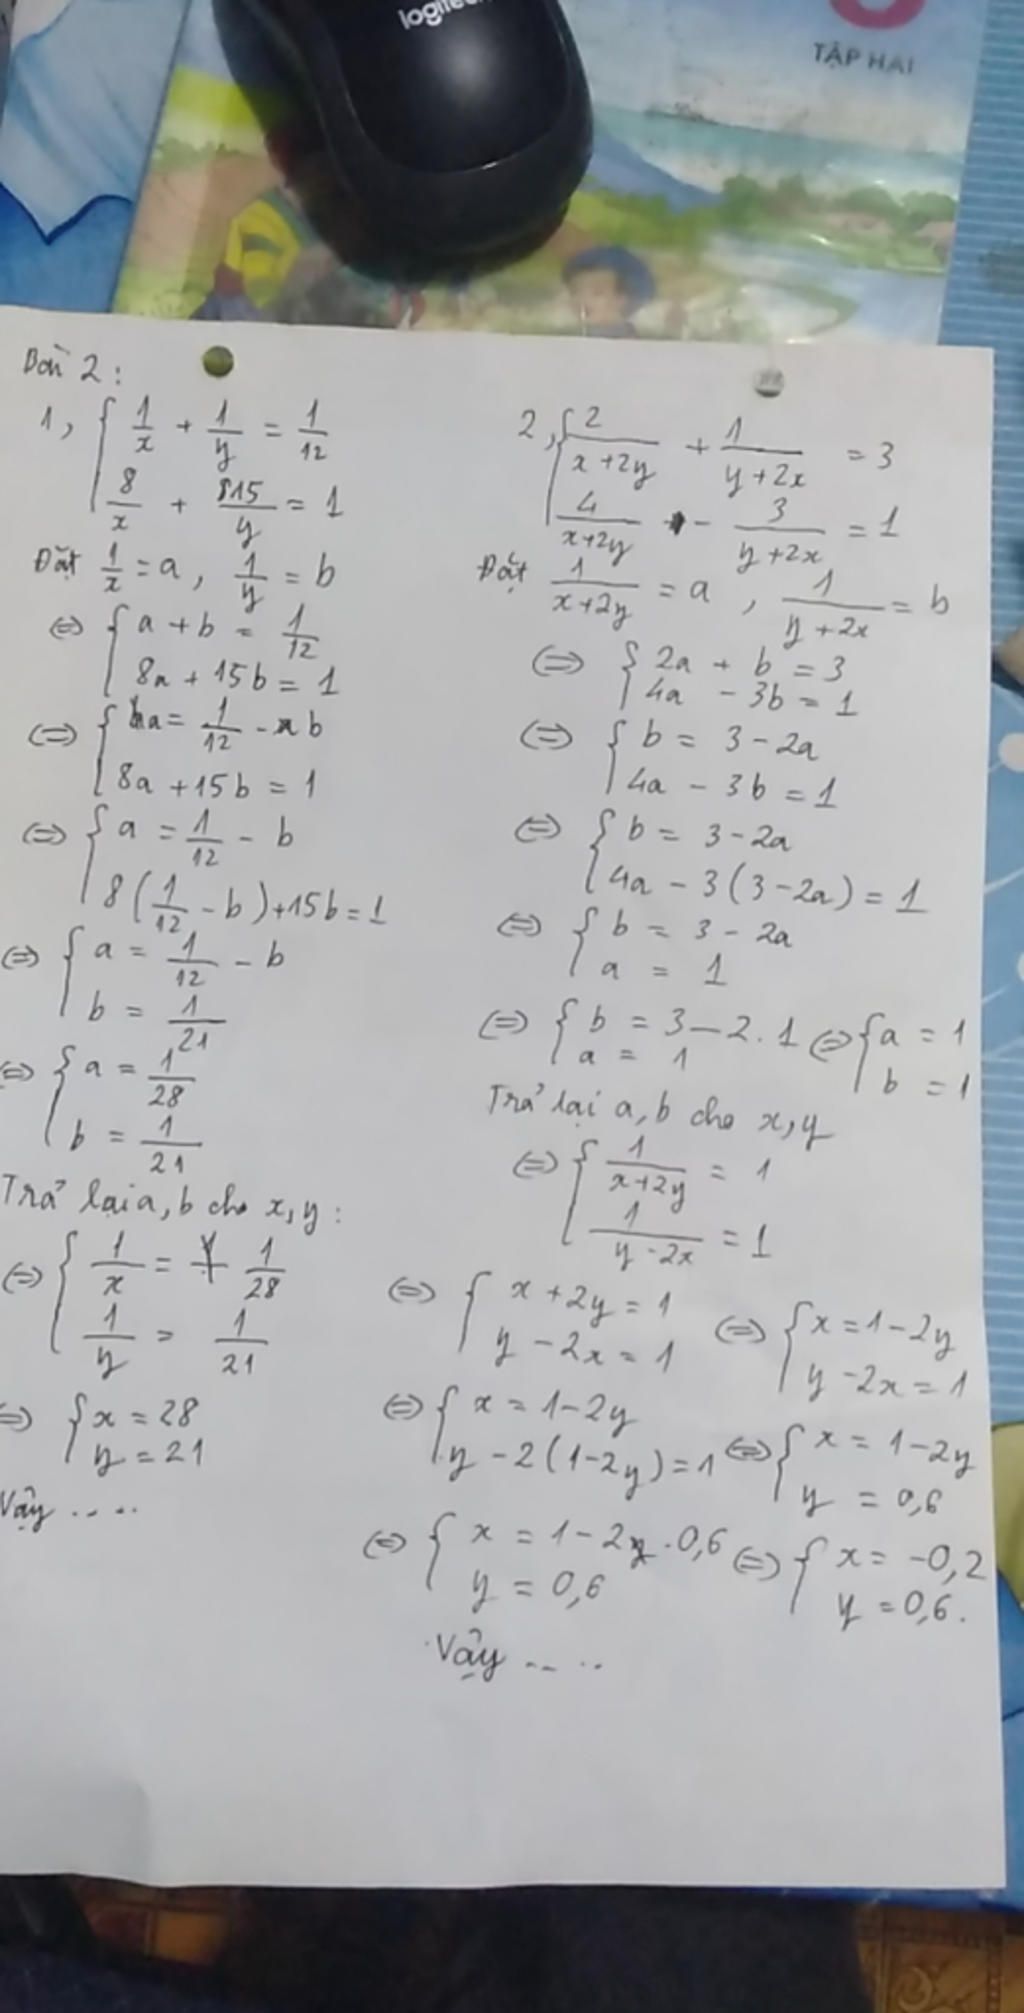 logitech
TẬP HAI
Bài 2:
1, { 1/x + 1/y = 1/12
8/x + 15/y = 1
Đặt 1/x = a, 1/y = b
⇔ { a + b = 1/12
8a + 15b = 1
⇔ { a = 1/12 - b
8a + 15b = 1
⇔ { a = 1/12 - b
8(1/12 - b) + 15b = 1
⇔ { a = 1/12 - b
b = 1/21
⇔ { a = 1/28
b = 1/21
Trả lại a, b cho x, y:
⇔ { 1/x = 1/28
1/y = 1/21
⇔ { x = 28
y = 21
Vậy ....
2, { 2/(x+2y) + 1/(y+2x) = 3
4/(x+2y) - 3/(y+2x) = 1
Đặt 1/(x+2y) = a, 1/(y+2x) = b
⇔ { 2a + b = 3
4a - 3b = 1
⇔ { b = 3 - 2a
4a - 3b = 1
⇔ { b = 3 - 2a
4a - 3(3 - 2a) = 1
⇔ { b = 3 - 2a
a = 1
⇔ { b = 3 - 2.1 ⇔ { a = 1
a = 1 b = 1
Trả lại a, b cho x, y
⇔ { 1/(x+2y) = 1
1/(y-2x) = 1
⇔ { x + 2y = 1 ⇔ { x = 1 - 2y
y - 2x = 1 y - 2x = 1
⇔ { x = 1 - 2y ⇔ { x = 1 - 2y
y - 2(1 - 2y) = 1 y = 0,6
⇔ { x = 1 - 2.0,6 ⇔ { x = -0,2
y = 0,6 y = 0,6.
Vậy ....